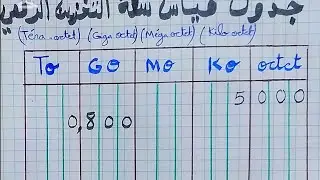 جدول قياس سعة التخزين الرقمي
(Téra octet) (Giga octet) (Méga octet) (Kilo octet)
To GO Mo Ko octet
5 0 0 0
0,8 0 0